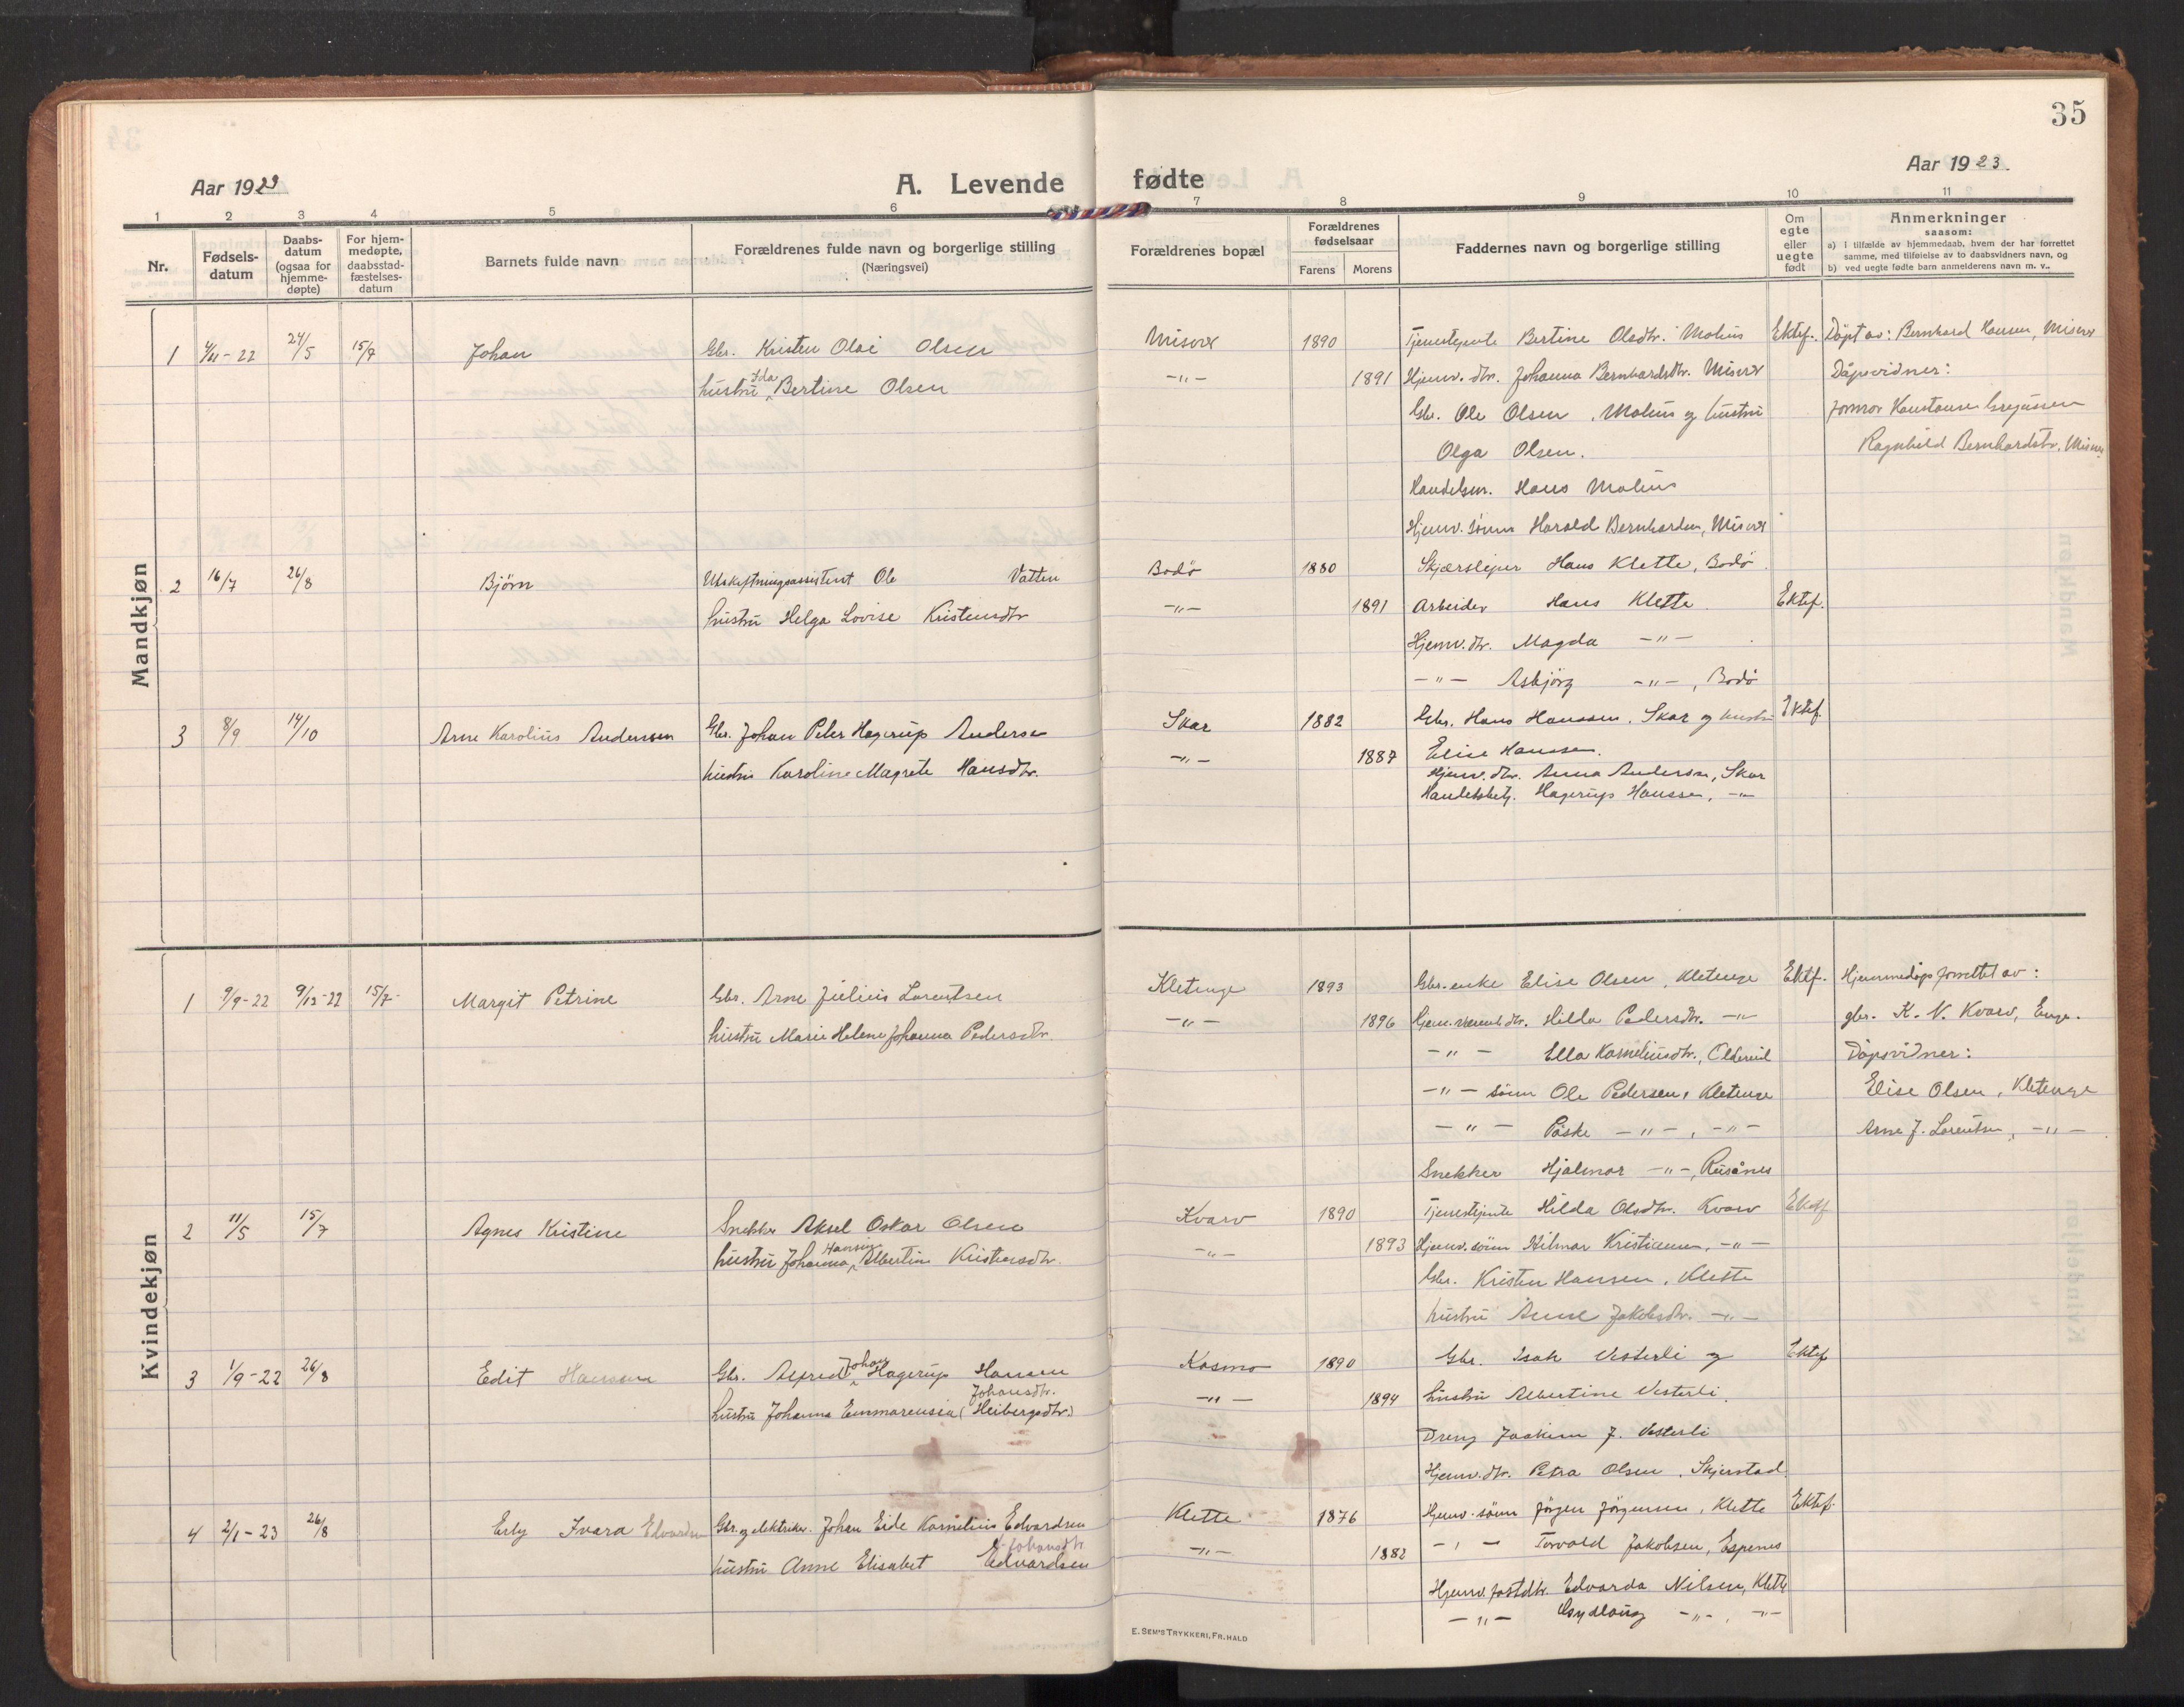 35
Aar 1923
A. Levende fødte
Aar 1923.
1 2 3 4 5 6 7 8 9 10 11
Nr.
Fødsels-
datum
Daabs-
datum
(ogsaa for
hjemme-
døpte)
For hjem-
medøpte,
daabsstad-
fæstelses-
datum
Barnets fulde navn
Forældrenes fulde navn og borgerlige stilling
(Næringsvei)
Forældrenes bopæl
Forældrenes
fødselsaar
Farens Morens
Faddernes navn og borgerlige stilling
Om
egte
eller
uegte
født
Anmerkninger
saasom:
a) i tilfælde av hjemmedaab, hvem der har forrettet
samme, med tilføielse av to daabsvidners navn, og
b) ved uegte fødte barn anmelderens navn m. v..
Mandkjøn
1 4/11-22 24/5 15/7 Johan Gbr. Kristen Olai Olsen Misvær 1890 Tjenestejente Bertine Olsdtr. Molius Ektef. Döpt av: Bernhard Hansen, Misvær
hustru Ida Bertine Olsen -"- 1891 Hjemv. dtr. Johanna Bernhardsdtr. Misvær Dåpsvidner:
Gbr. Ole Olsen, Molius og hustru jormor
Olga Olsen. Ragnhild Bernhardsdtr. Misvær
Handelsm. Hans Molius
Hjemv. sönn Harald Bernhardsen, Misvær
2 16/7 26/8 Björn Utskiftningsassistent Ole Vatten Bodö 1880 Skjærsliper Hans Klette, Bodö.
hustru Helga Lovise Kristensdtr -"- 1891 Arbeider Hans Klette. Ektef.
Hjemv. dtr. Magda -"-
-"- Asbjörg -"-, Bodö
3 8/9 14/10 Arne Karolius Andersen Gbr. Johan Peter Hagerup Andersen Skar 1882 Gbr. Hans Hanssen, Skar og hustru Ektef
hustru Karoline Magrete Hansdtr. -"- 1887 Elise Hanssen.
Hjemv. dtr. Anna Andersen, Skar
Handelsbetj. Hagerup Hanssen, -"-
Kvindekjøn
1 9/9-22 9/12-22 15/7- Margit Petrine Gbr. Arne Julius Lorentsen Kletenge 1893 Gbr. enke Elise Olsen, Kletenge Ektef. Hjemmedåp forrettet av:
hustru Marie Helene Johanna Pedersdtr. -"- 1896 Hjem. værende dtr. Hilda Pedersdtr. -"- gbr. K. N. Kvarv, Enge.
-"- Ella Korneliusdtr., Dåpsvidner:
-"- sönn Ole Pedersen, Kletenge Elise Olsen, Kletenge
-"- Påske -"-, -"- Arne J. Lorentsen, -"-
Snekker Hjalmar -"-, Rusånes
2 11/5 15/7 Agnes Kristine Snekker Aksel Oskar Olsen Kvarv 1890 Tjenestejente Hilda Olsdtr. Kvarv Ektef
hustru Johanna Hansine Albertine Kristensdtr. -"- 1893 Hjemv. sönn Hilmar Kristiansen, -"-
Gbr. Kristen Hansen, Klette
hustru Anne Jakobsdtr. -"-
3 1/9-22 26/8 Edit Hanssen Gbr. Alfred Johan Hagerup Hansen Kosmo 1890 Gbr. Isak Vesterli og Ektef
Johansdtr.
hustru Johanna Emmarensia (Heibergsdtr.) -"- 1894 hustru Albertine Vesterli.
Dreng Joakim J. Vesterli
Hjemv. dtr. Petra Olsen, Skjerstad.
4 2/1-23 26/8 Erly Ivara Edvardsen Gbr. og elektriker. Johan Eide Kornelius Edvardsen Klette 1876 Hjemv. sönn Jörgen Jörgensen, Klette Ektef.
Johansdtr
hustru Anne Elisabet Edvardsen -"- 1882 -"- Torvald Jakobsen, Espenes
Hjemv. fostdtr. Edvarda Nilsen, Klette
-"- Gydlaug -"-, -"-
E. SEM'S TRYKKERI, FR.HALD